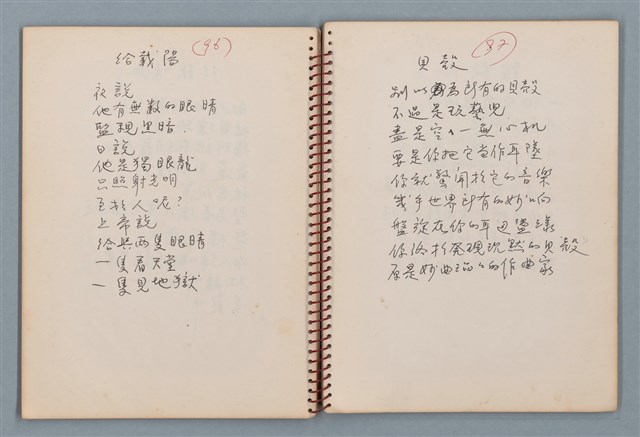 (96)
給義陽
夜說
他有無數的眼睛
監視黑暗.
日說
他是獨眼龍
只照射光明
至於人呢?
上帝說
給與兩隻眼睛
一隻看天堂
一隻見地獄
(97)
貝殼
別以為所有的貝殼
不過是玩藝兒
盡是空空無心机
要是你把它当作耳墜
你就驚聞於它的音樂
幾乎世界所有的妙响
盤旋在你的耳边盪漾
你終於發現沉默的貝殼
原是妙曲的作曲家